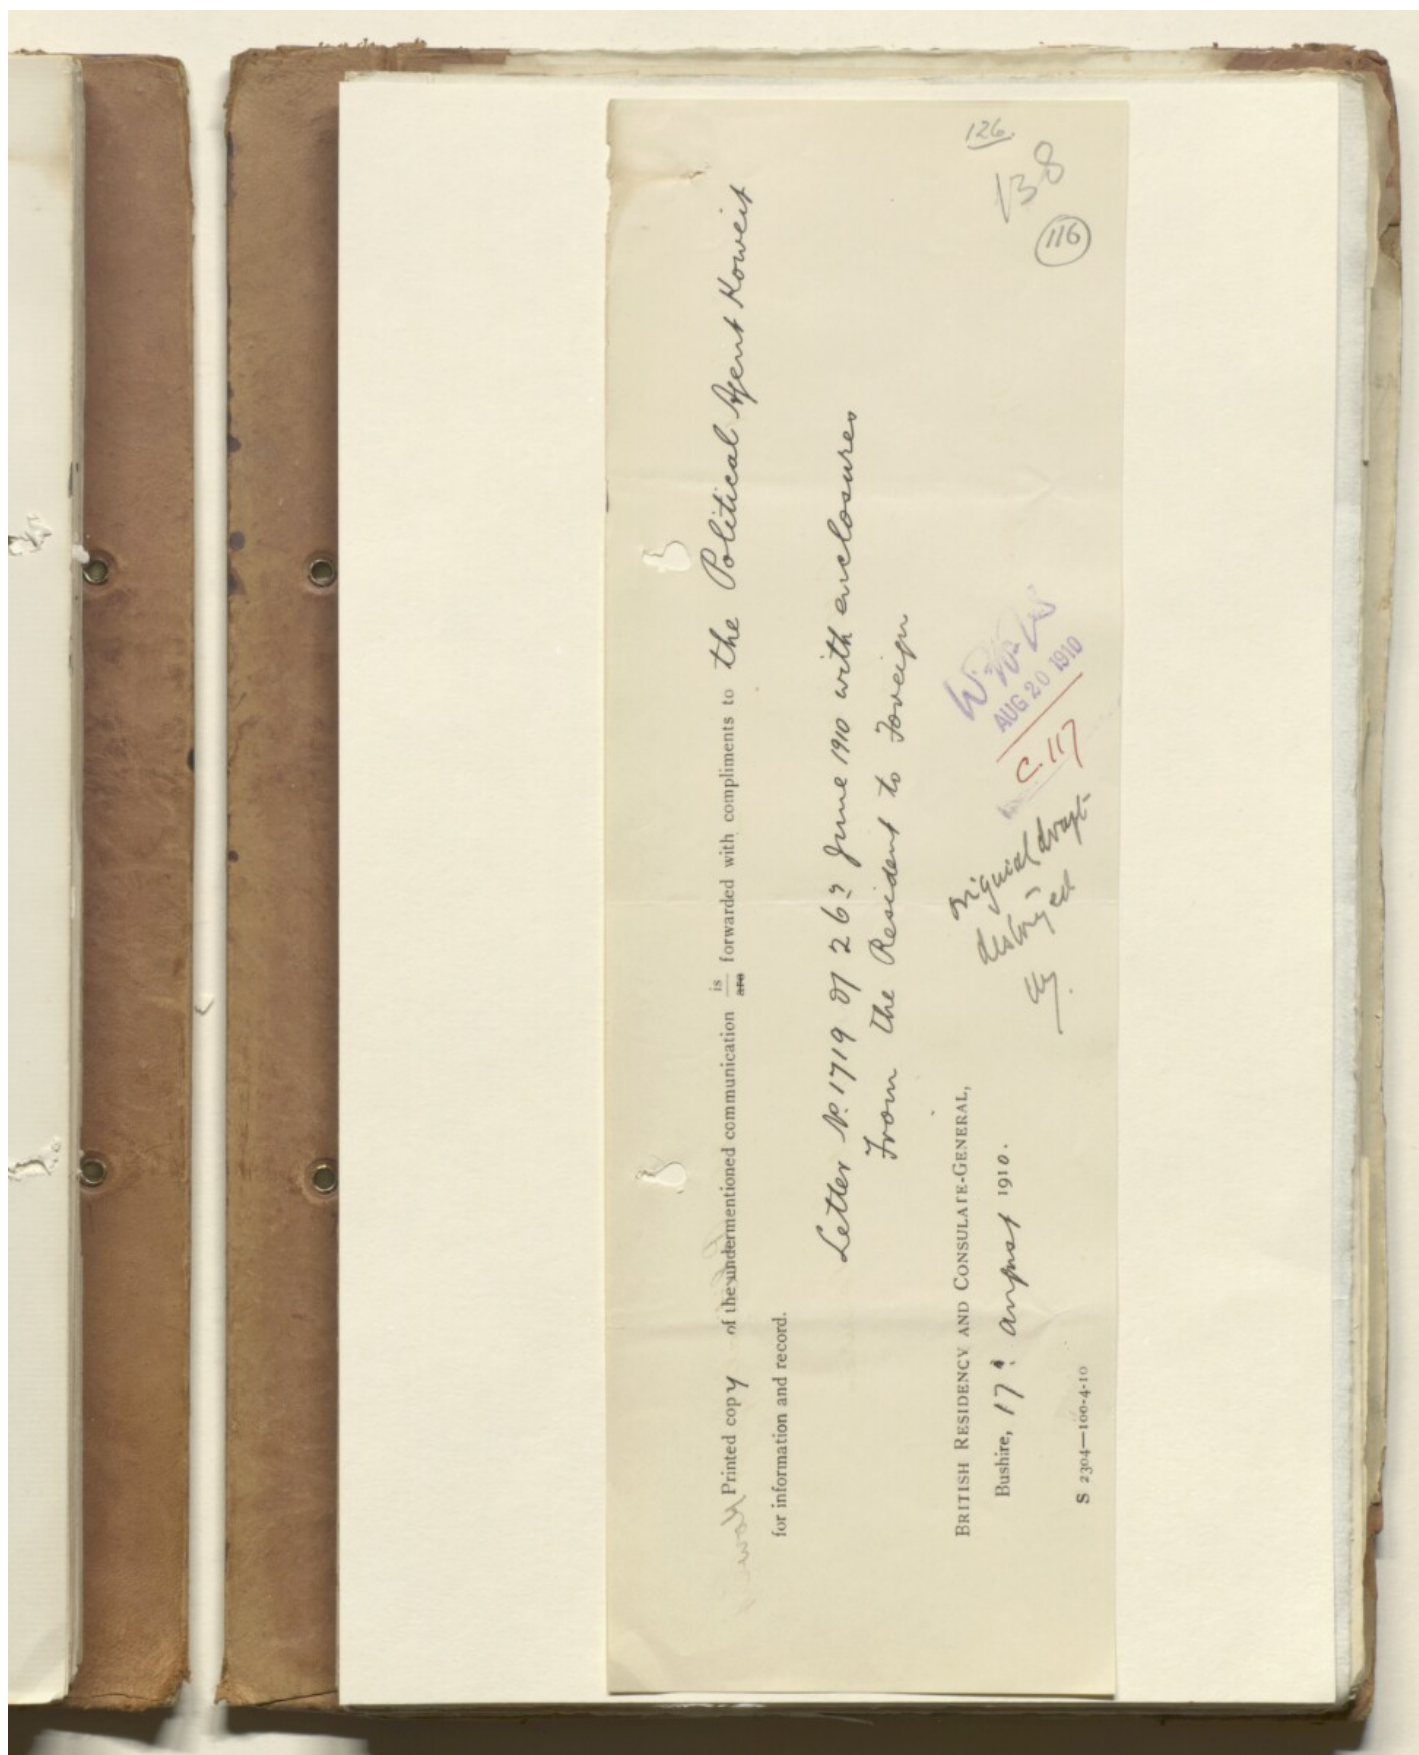 126
138
116
Printed copy of the undermentioned communication is are forwarded with compliments to the Political Agent Koweit
for information and record.
Letter No. 1719 of 26th June 1910 with enclosures
From the Resident to Foreign
BRITISH RESIDENCY AND CONSULATE-GENERAL,
Bushire, 17th August 1910.
S 2304—100-4-10
AUG 20 1910
C. 117
Original draft
destroyed